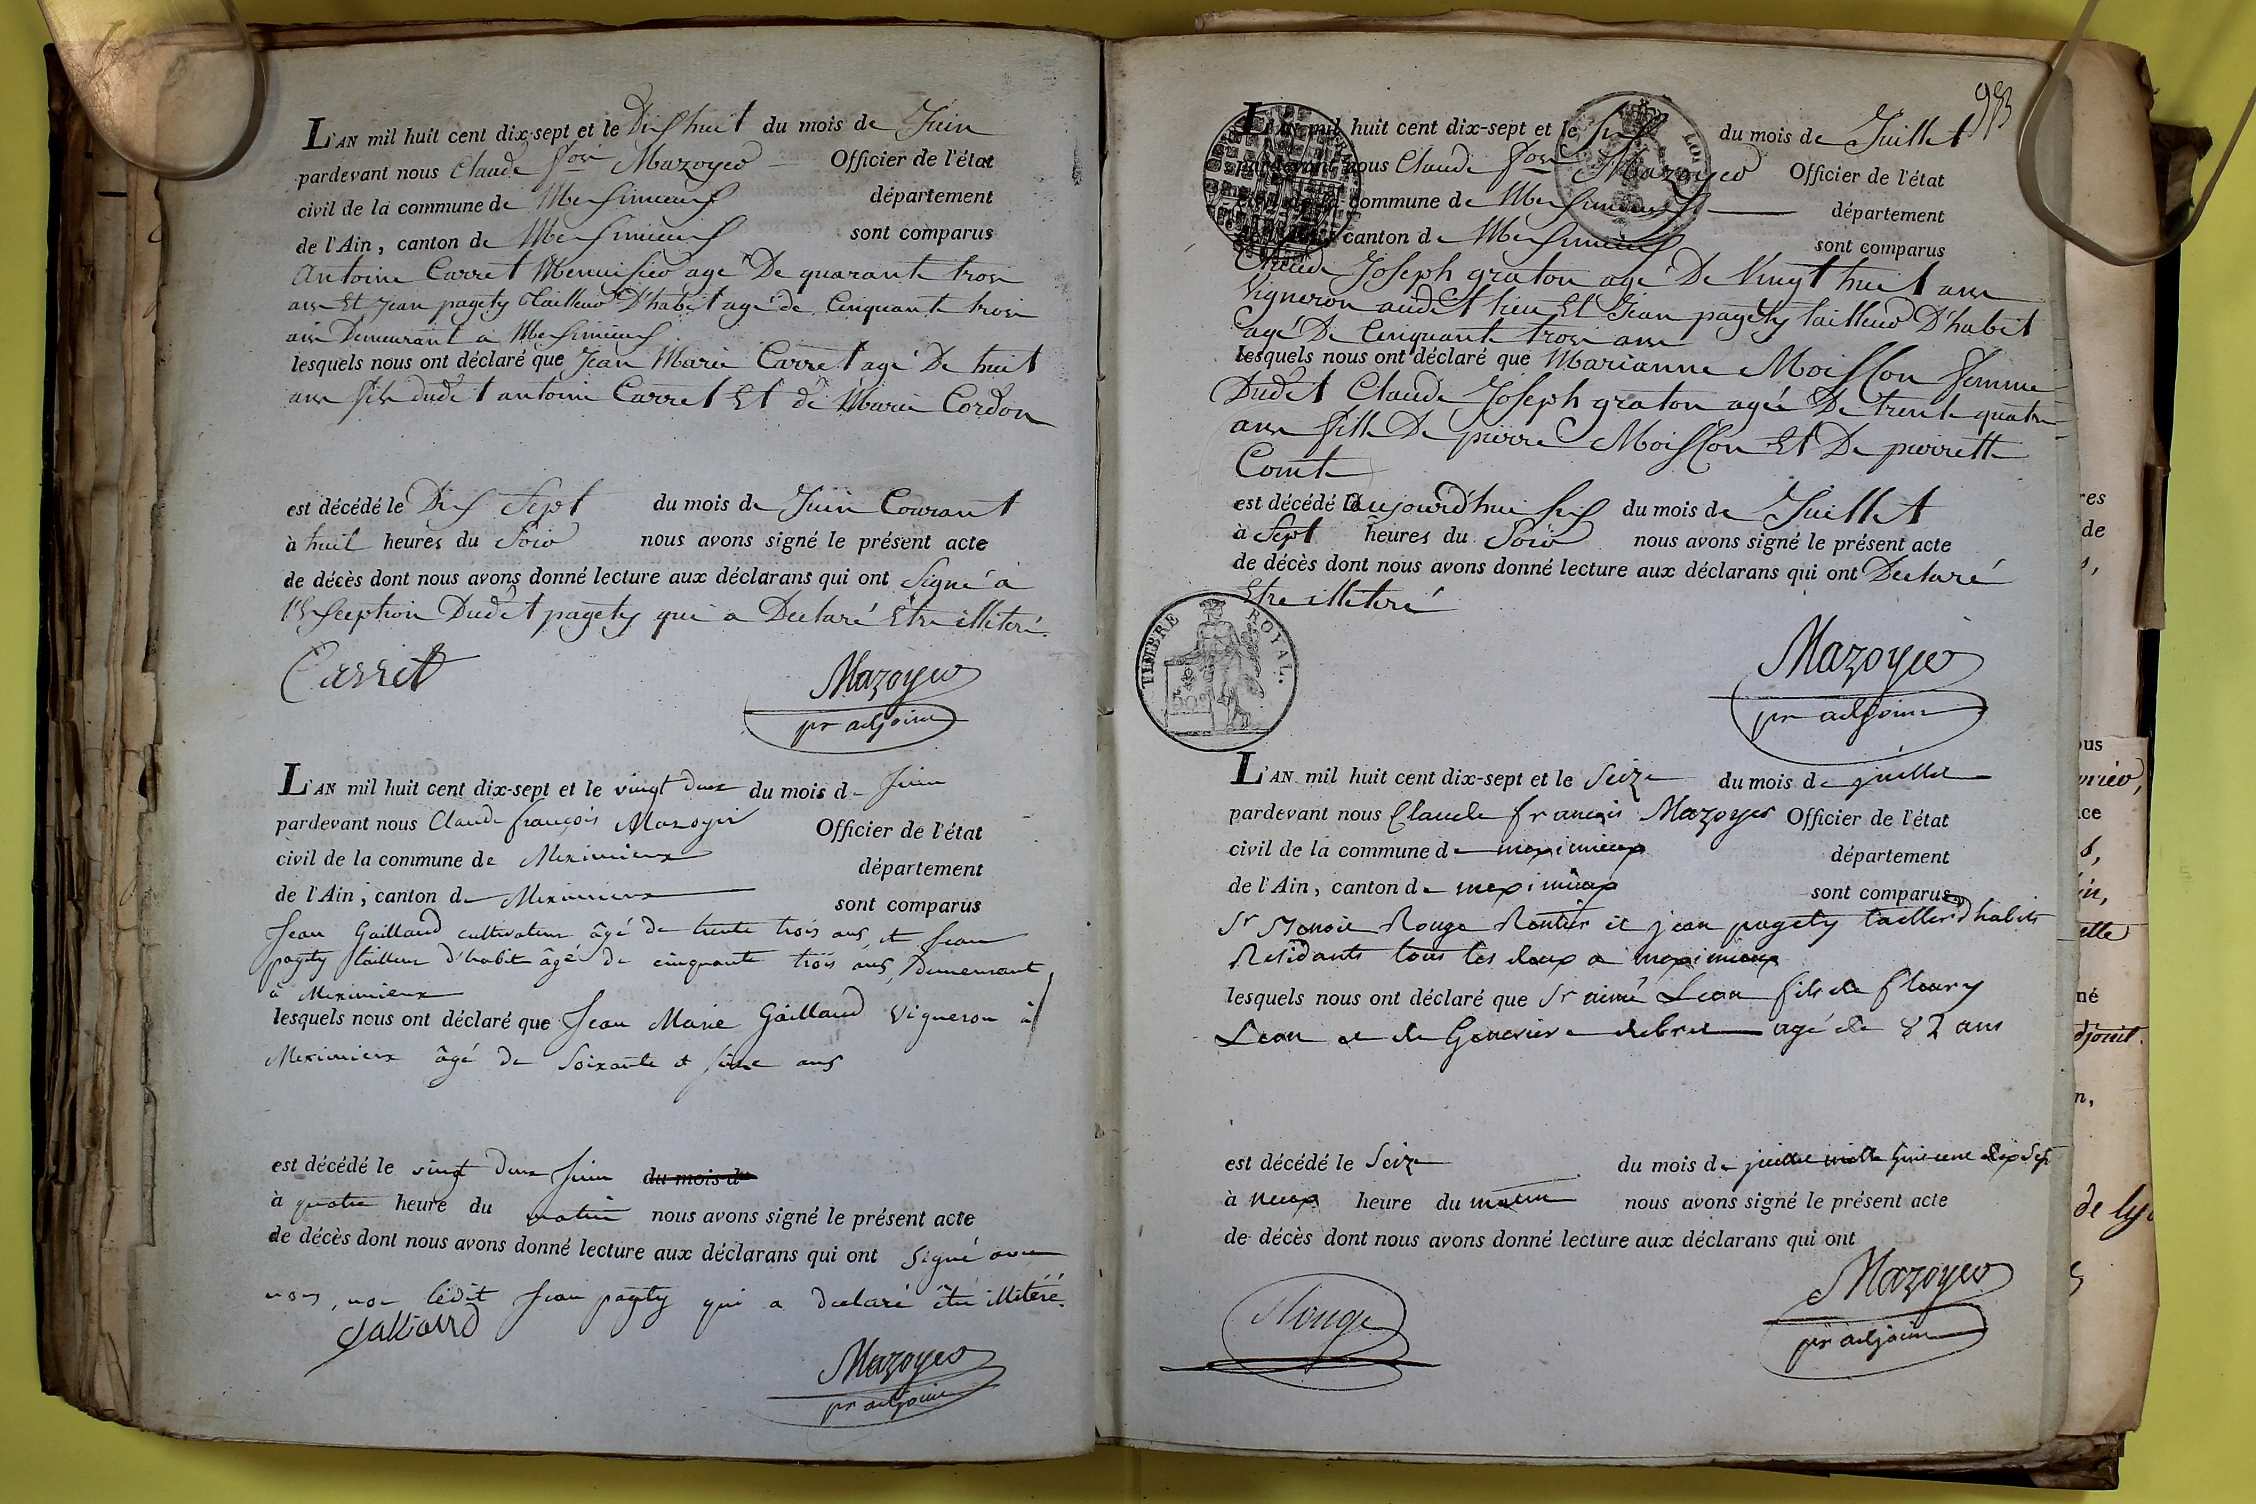 L'AN mil huit cent dix-sept et le Dishuit du mois de Juin
pardevant nous Claude fois Mazoyer Officier de l'état
civil de la commune de Messimieux département
de l'Ain, canton de Messimieux sont comparus
Antoine Carret Menuisier agé De quarante trois
ans Et Jean pagety tailleur D'habit agé de Cinquante trois
ans Demeurant a Messimieux
lesquels nous ont déclaré que Jean Marie Carret agé De huit
ans fils dudit antoine Carret Et de Marie Cordon
est décédé le Dis Sept du mois de Juin Courant
à huit heures du Soir nous avons signé le présent acte
de décès dont nous avons donné lecture aux déclarans qui ont Signé à
l'Exception Dudit pagety qui a Declaré Etre illiteré.
Carret
Mazoyer
pr adjoint
L'AN mil huit cent dix-sept et le vingt deux du mois de Juin
pardevant nous Claude françois Mazoyer Officier de l'état
civil de la commune de Meximieux département
de l'Ain, canton de Meximieux sont comparus
Jean Gaillard cultivateur âgé de trente trois ans et Jean
pagety tailleur d'habit âgé de cinquante trois ans, Demeurant
à Meximieux
lesquels nous ont déclaré que Jean Marie Gaillard Vigneron à
Meximieux âgé de Soixante et ans
est décédé le vingt deux juin du mois de
à quatre heure du matin nous avons signé le présent acte
de décès dont nous avons donné lecture aux déclarans qui ont signé avec
nous, non ledit Jean pagety qui a declaré être illitéré.
Galliard
Mazoyer
pr adjoint
953
L'AN mil huit cent dix-sept et le Six du mois de Juillet
pardevant nous Claude fois Mazoyer Officier de l'état
civil de la commune de Messimieux département
canton de Messimieux sont comparus
Claude Joseph graton agé De Vingt huit ans
Vigneron audit lieu Et Jean pagety tailleur D'habit
agé De Cinquante trois ans
lesquels nous ont déclaré que Marianne Moisson femme
Dudit Claude Joseph graton agée De trente quatre
ans fille De pierre Moisson Et De pierrette
Comte
est décédé le aujourd'hui six du mois de Juillet
à Sept heures du Soir nous avons signé le présent acte
de décès dont nous avons donné lecture aux déclarans qui ont Declaré
Etre illiteré
TIMBRE ROYAL.
Mazoyer
pr adjoint
L'AN mil huit cent dix-sept et le Seize du mois de juillet
pardevant nous Claude francois Mazoyer Officier de l'état
civil de la commune de meximieux département
de l'Ain, canton de meximieux sont comparus
Sr Rouge Rentier et jean pagety tailleur d'habits
Residants tous les deux a meximieux
lesquels nous ont déclaré que Sr aimé Leon fils de fleury
Leon et de Genevieve debret agé de 82 ans
est décédé le Seize du mois de juillet mille huit cent dix Sept
à neuf heure du matin nous avons signé le présent acte
de décès dont nous avons donné lecture aux déclarans qui ont
Rouge
Mazoyer
pr adjoint